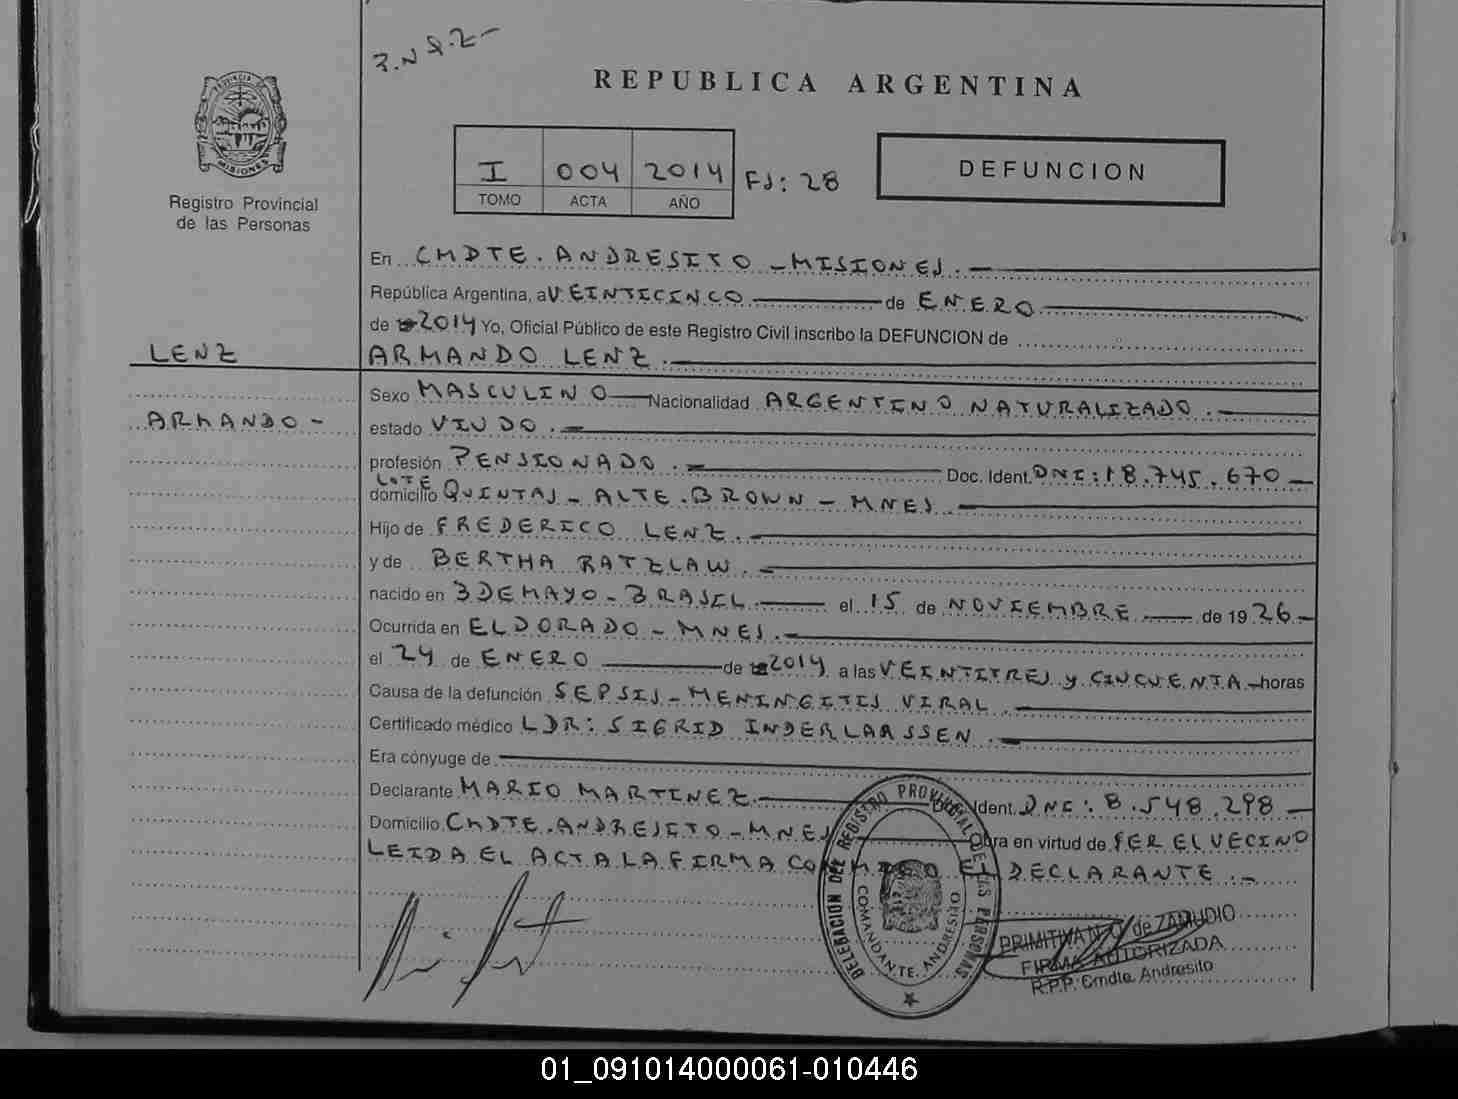 3.N Q.Z-
REPUBLICA ARGENTINA
PROVINCIA DE
MISIONES
Registro Provincial
de las Personas
I 004 2014 FJ: 28
TOMO ACTA AÑO
DEFUNCION
En CMDTE. ANDRESITO - MISIONES.-
República Argentina, a VEINTICINCO de ENERO
de 2014 Yo, Oficial Público de este Registro Civil inscribo la DEFUNCION de
LENZ ARMANDO LENZ.-
Sexo MASCULINO Nacionalidad ARGENTINO NATURALIZADO.-
ARMANDO - estado VIUDO.-
profesión PENSIONADO.- Doc. Ident. DNI: 18.745.670-
LOTE
domicilio QUINTAS - ALTE. BROWN - MNES.-
Hijo de FREDERICO LENZ.-
y de BERTHA RATZLAW.-
nacido en 3 DE MAYO - BRASIL.- el 15 de NOVIEMBRE.- de 19 26-
Ocurrida en ELDORADO - MNES.-
el 24 de ENERO de 2014 a las VEINTITRES y CINCUENTA- horas
Causa de la defunción SEPSIS - MENINGITIS VIRAL.-
Certificado médico LDR: SIGRID INDERLARSSEN.-
Era cónyuge de.-
Declarante MARIO MARTINEZ.- Ident. DNI: 8.548.298-
Domicilio CMDTE. ANDRESITO - MNES Obra en virtud de SER EL VECINO
LEIDA EL ACTA LA FIRMA CONMIGO EL DECLARANTE.-
DELEGACION DEL REGISTRO PROVINCIAL DE LAS PERSONAS
COMANDANTE ANDRESITO
PRIMITIVA N. de ZAMUDIO
FIRMA AUTORIZADA
R.P.P. Cmdte. Andresito
01_091014000061-010446